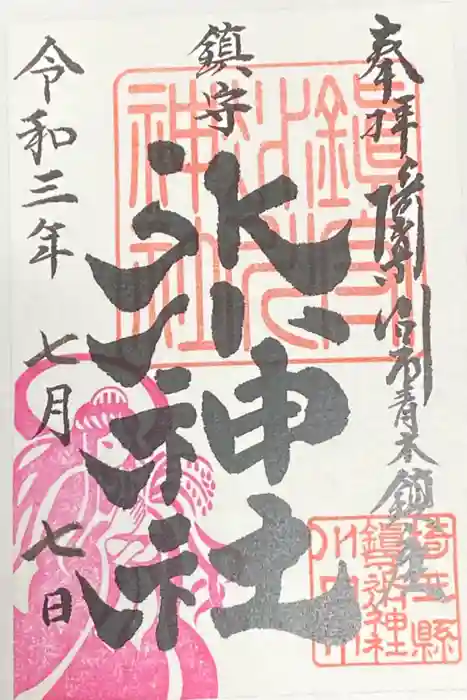 奉拝 埼玉県川口市青木鎮座
鎮守
氷川神社
令和三年 七月 七日
鎮守氷川神社
埼玉縣川口市鎮守氷川神社